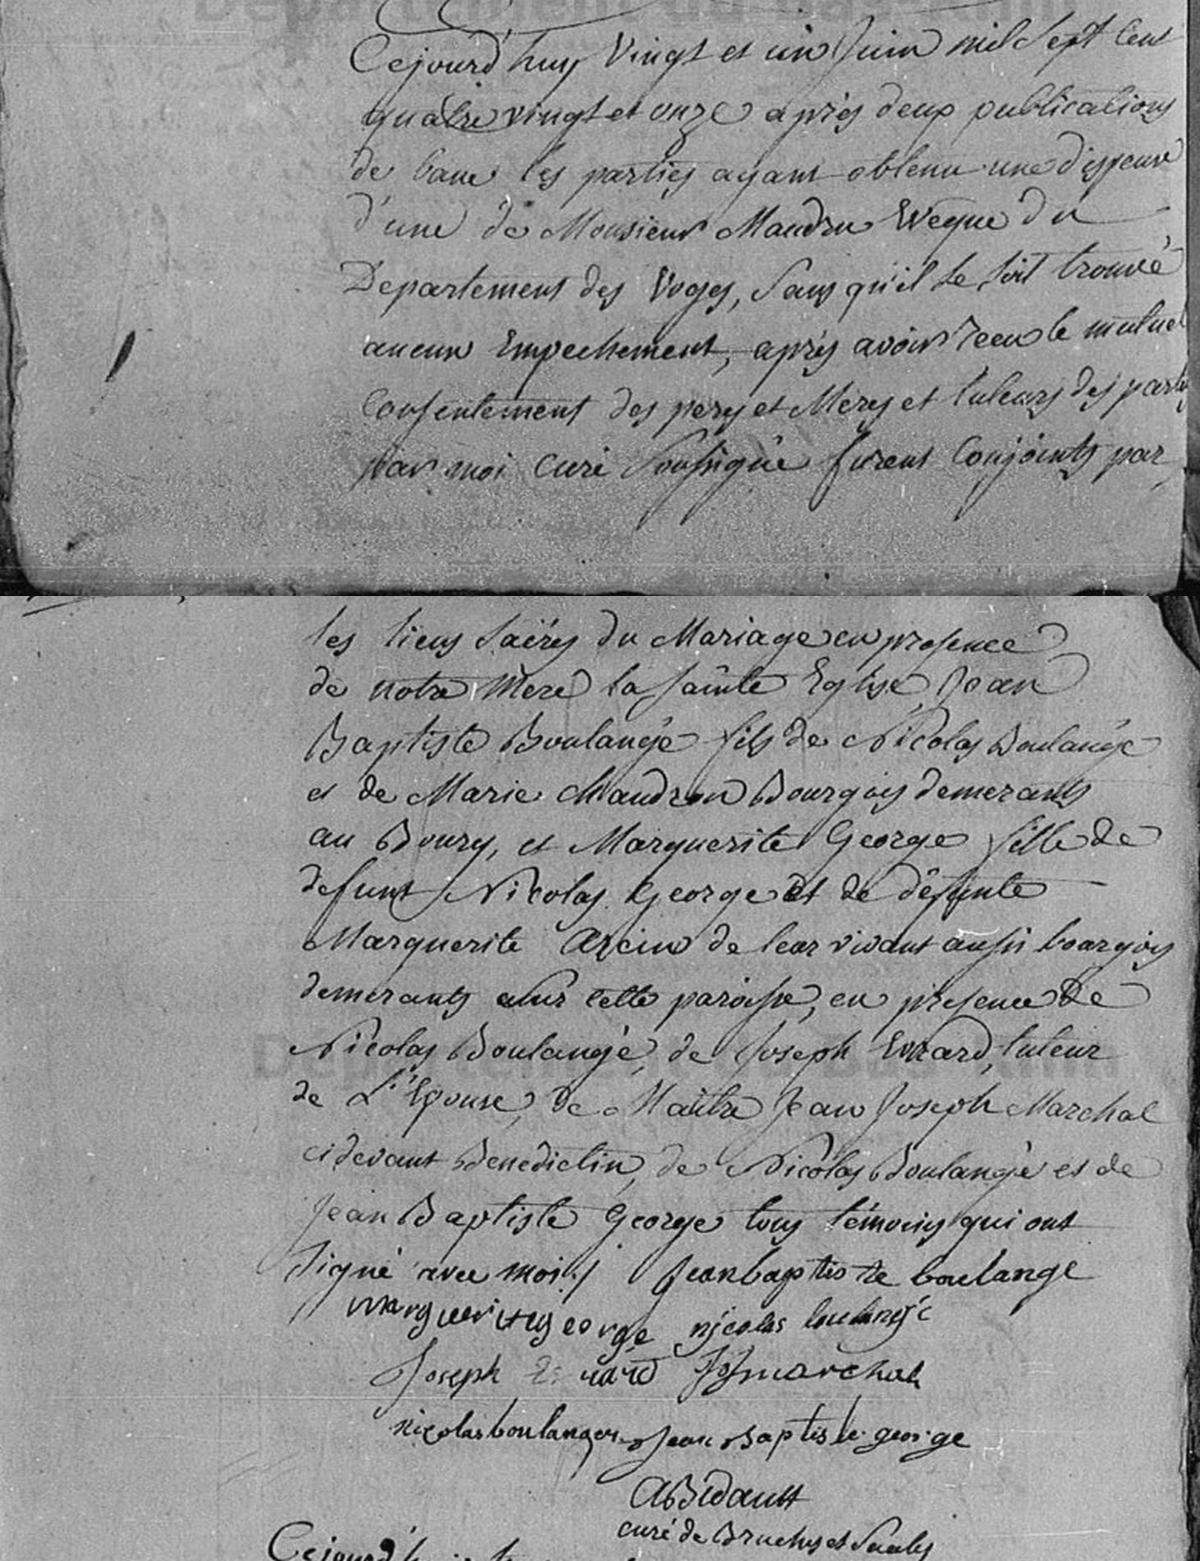 Cejourd'huy Vingt et un Juin mil Sept Cent
quatre vingt et onze après deux publications
de banc les parties ayant obtenu une dispense
d'une de Monsieur Maudru Eveque du
Departement des Voges, Sans qu'il se soit trouvé
aucun Empechement, après avoir recu le mutuel
Consentement des perrs et Meres et tuteurs des
par moi curé Soussigné furent Conjoints par
les liens Sacrés du Mariage en presence
de notre Mere la sainte Eglise, Jean
Baptiste Boulangé fils de Nicolas Boulangé
et de Marie Bourgois demerants
au Boury, et Marguerite George fille de
defunt Nicolas George et de défunte
Marguerite de leur vivant aussi bourgois
demerants cette paroisse, en presence de
Nicolas Boulangé, de Joseph Evrard, tuteur
de L'Epouse, de Maitre Jean Joseph Marchal
cidevant Benedictin, de Nicolas Boulangé et de
Jean Baptiste George tous témoins qui ont
Signé avec moi./ Jean baptiste boulange
marguerite george nicolas boulangé
Joseph marchal
nicolas boulanger Jean Baptiste george
ABidault
curé de Bruches et Saales
Cejourd'hui